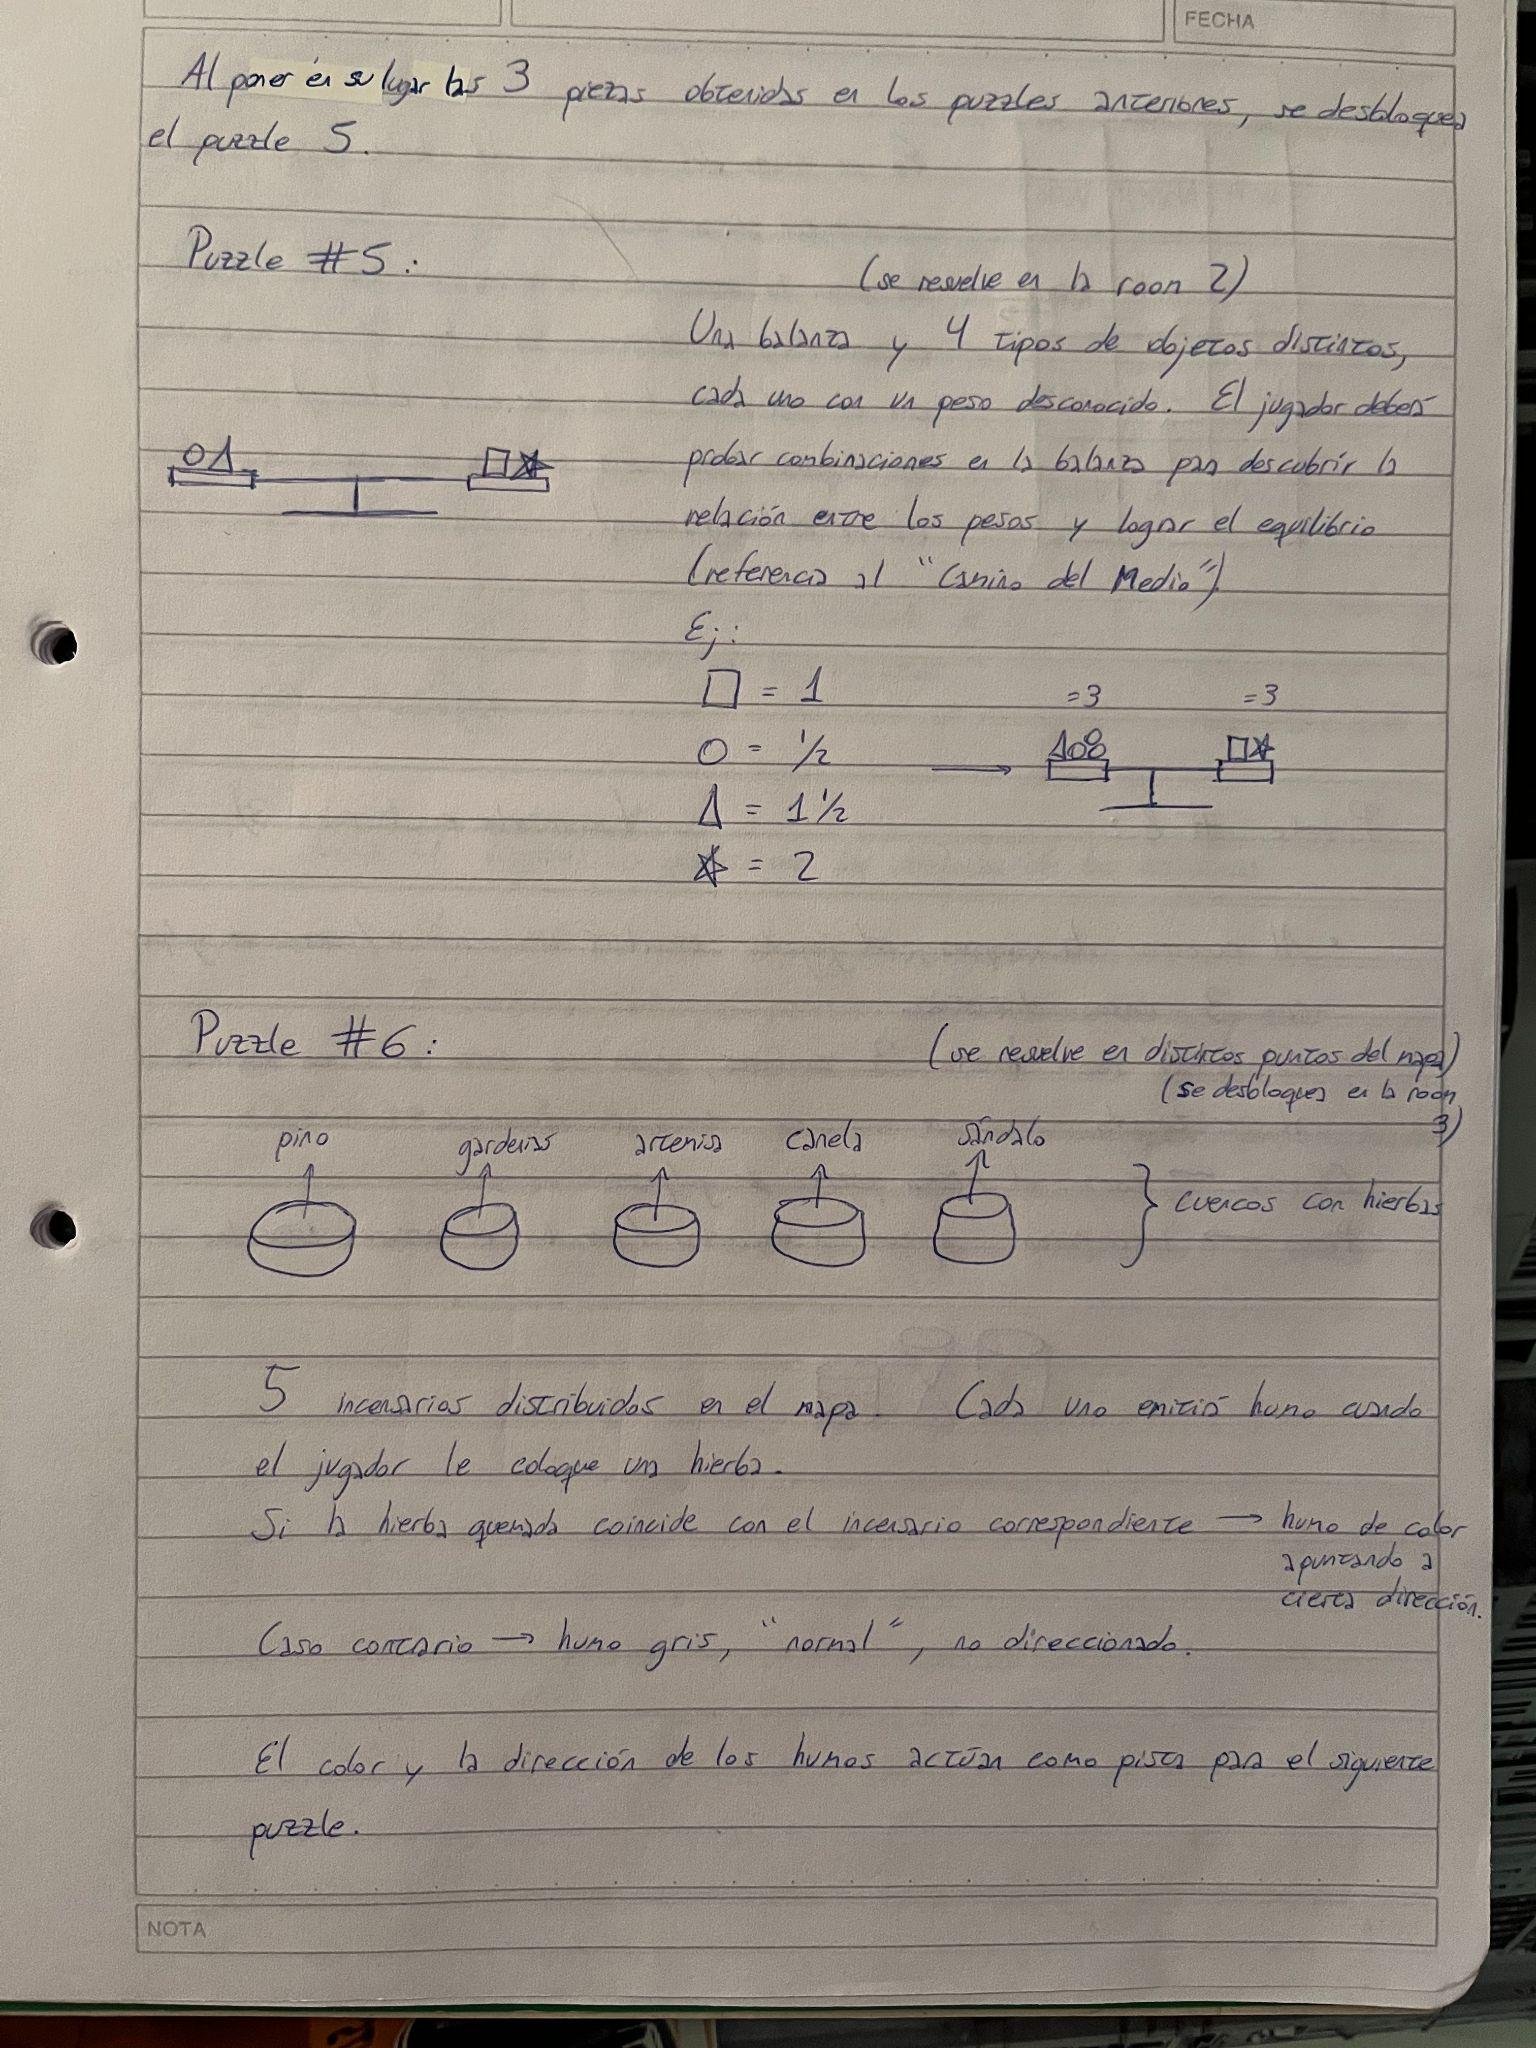 FECHA
Al poner en su lugar las 3 piezas obtenidas en los puzzles anteriores, se desbloquea
el puzzle 5.
Puzzle #5:
(se resuelve en la room 2)
Una balanza y 4 tipos de objetos distintos,
cada uno con un peso desconocido. El jugador deberá
probar combinaciones en la balanza para descubrir la
relación entre los pesos y lograr el equilibrio
(referencia al "Camino del Medio").
Ej:
□ = 1
○ = 1/2
△ = 1 1/2
☆ = 2
=3 =3
Puzzle #6:
(se resuelve en distintos puntos del mapa)
(se desbloquea en la room
3)
pino gardenias artemisa canela sándalo
cuencos con hierbas
5 incensarios distribuidos en el mapa. Cada uno emitirá humo cuando
el jugador le coloque una hierba.
Si la hierba quemada coincide con el incensario correspondiente → humo de color
apuntando a
cierta dirección.
Caso contrario → humo gris, "normal", no direccionado.
El color y la dirección de los humos actúan como pista para el siguiente
puzzle.
NOTA